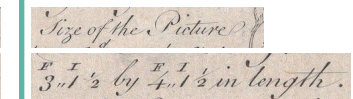 Size of the Picture
F I F I
3„1 ½ by 4„1 ½ in length.